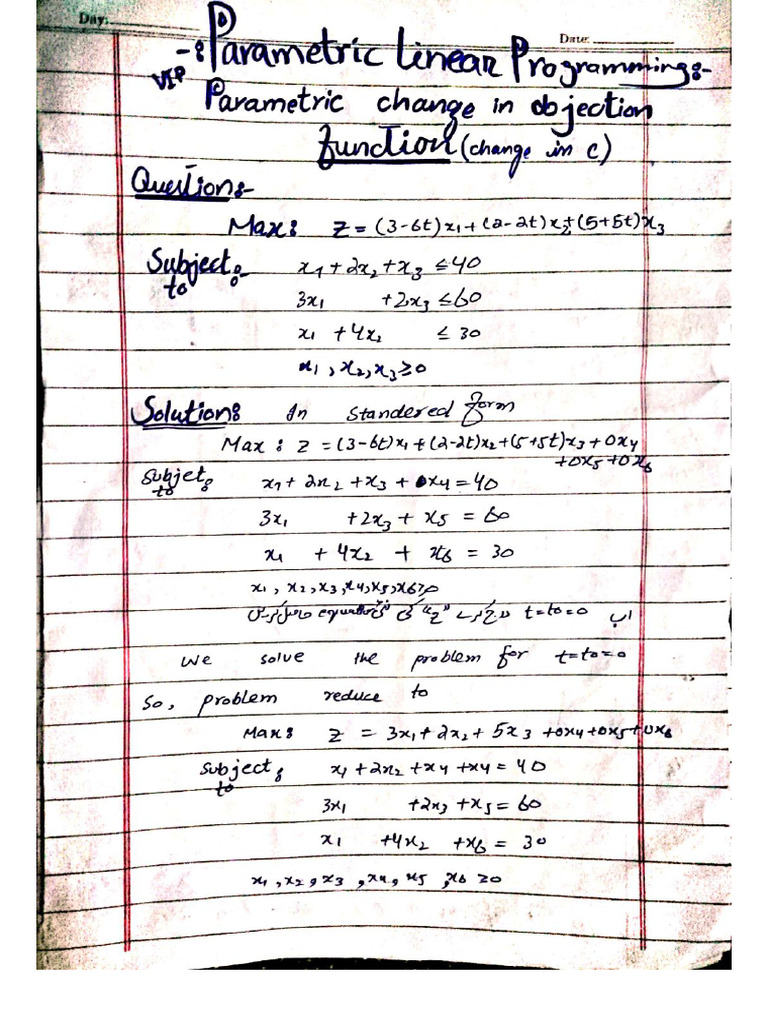 Day: Date:
-: Parametric Linear Programming:-
VIP Parametric change in objection
function (change in c)
Question:-
Max: Z = (3-6t)x₁+(2-2t)x₂+(5+5t)x₃
Subject to:- x₁+2x₂+x₃ ≤40
3x₁ +2x₃ ≤60
x₁ +4x₂ ≤ 30
x₁, x₂, x₃≥0
Solution: In Standered form
Max : Z = (3-6t)x₁+(2-2t)x₂+(5+5t)x₃+0x₄
+0x₅+0x₆
Subjet to: x₁+2x₂+x₃+0x₄=40
3x₁ +2x₃+ x₅ = 60
x₁ +4x₂ + x₆ = 30
x₁, x₂, x₃, x₄, x₅, x₆≥0
اب t=t₀=0 کے "Z" کی equation
We solve the problem for t=t₀=0
So, problem reduce to
Max: Z = 3x₁+2x₂+ 5x₃ +0x₄+0x₅+0x₆
Subject to: x₁+2x₂+x₄+x₄=40
3x₁ +2x₃+x₅=60
x₁ +4x₂ +x₆ = 30
x₁, x₂, x₃, x₄, x₅, x₆ ≥0